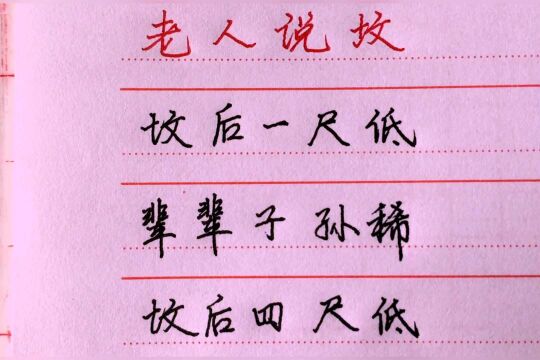 老人说坟
坟后一尺低
辈辈子孙稀
坟后四尺低